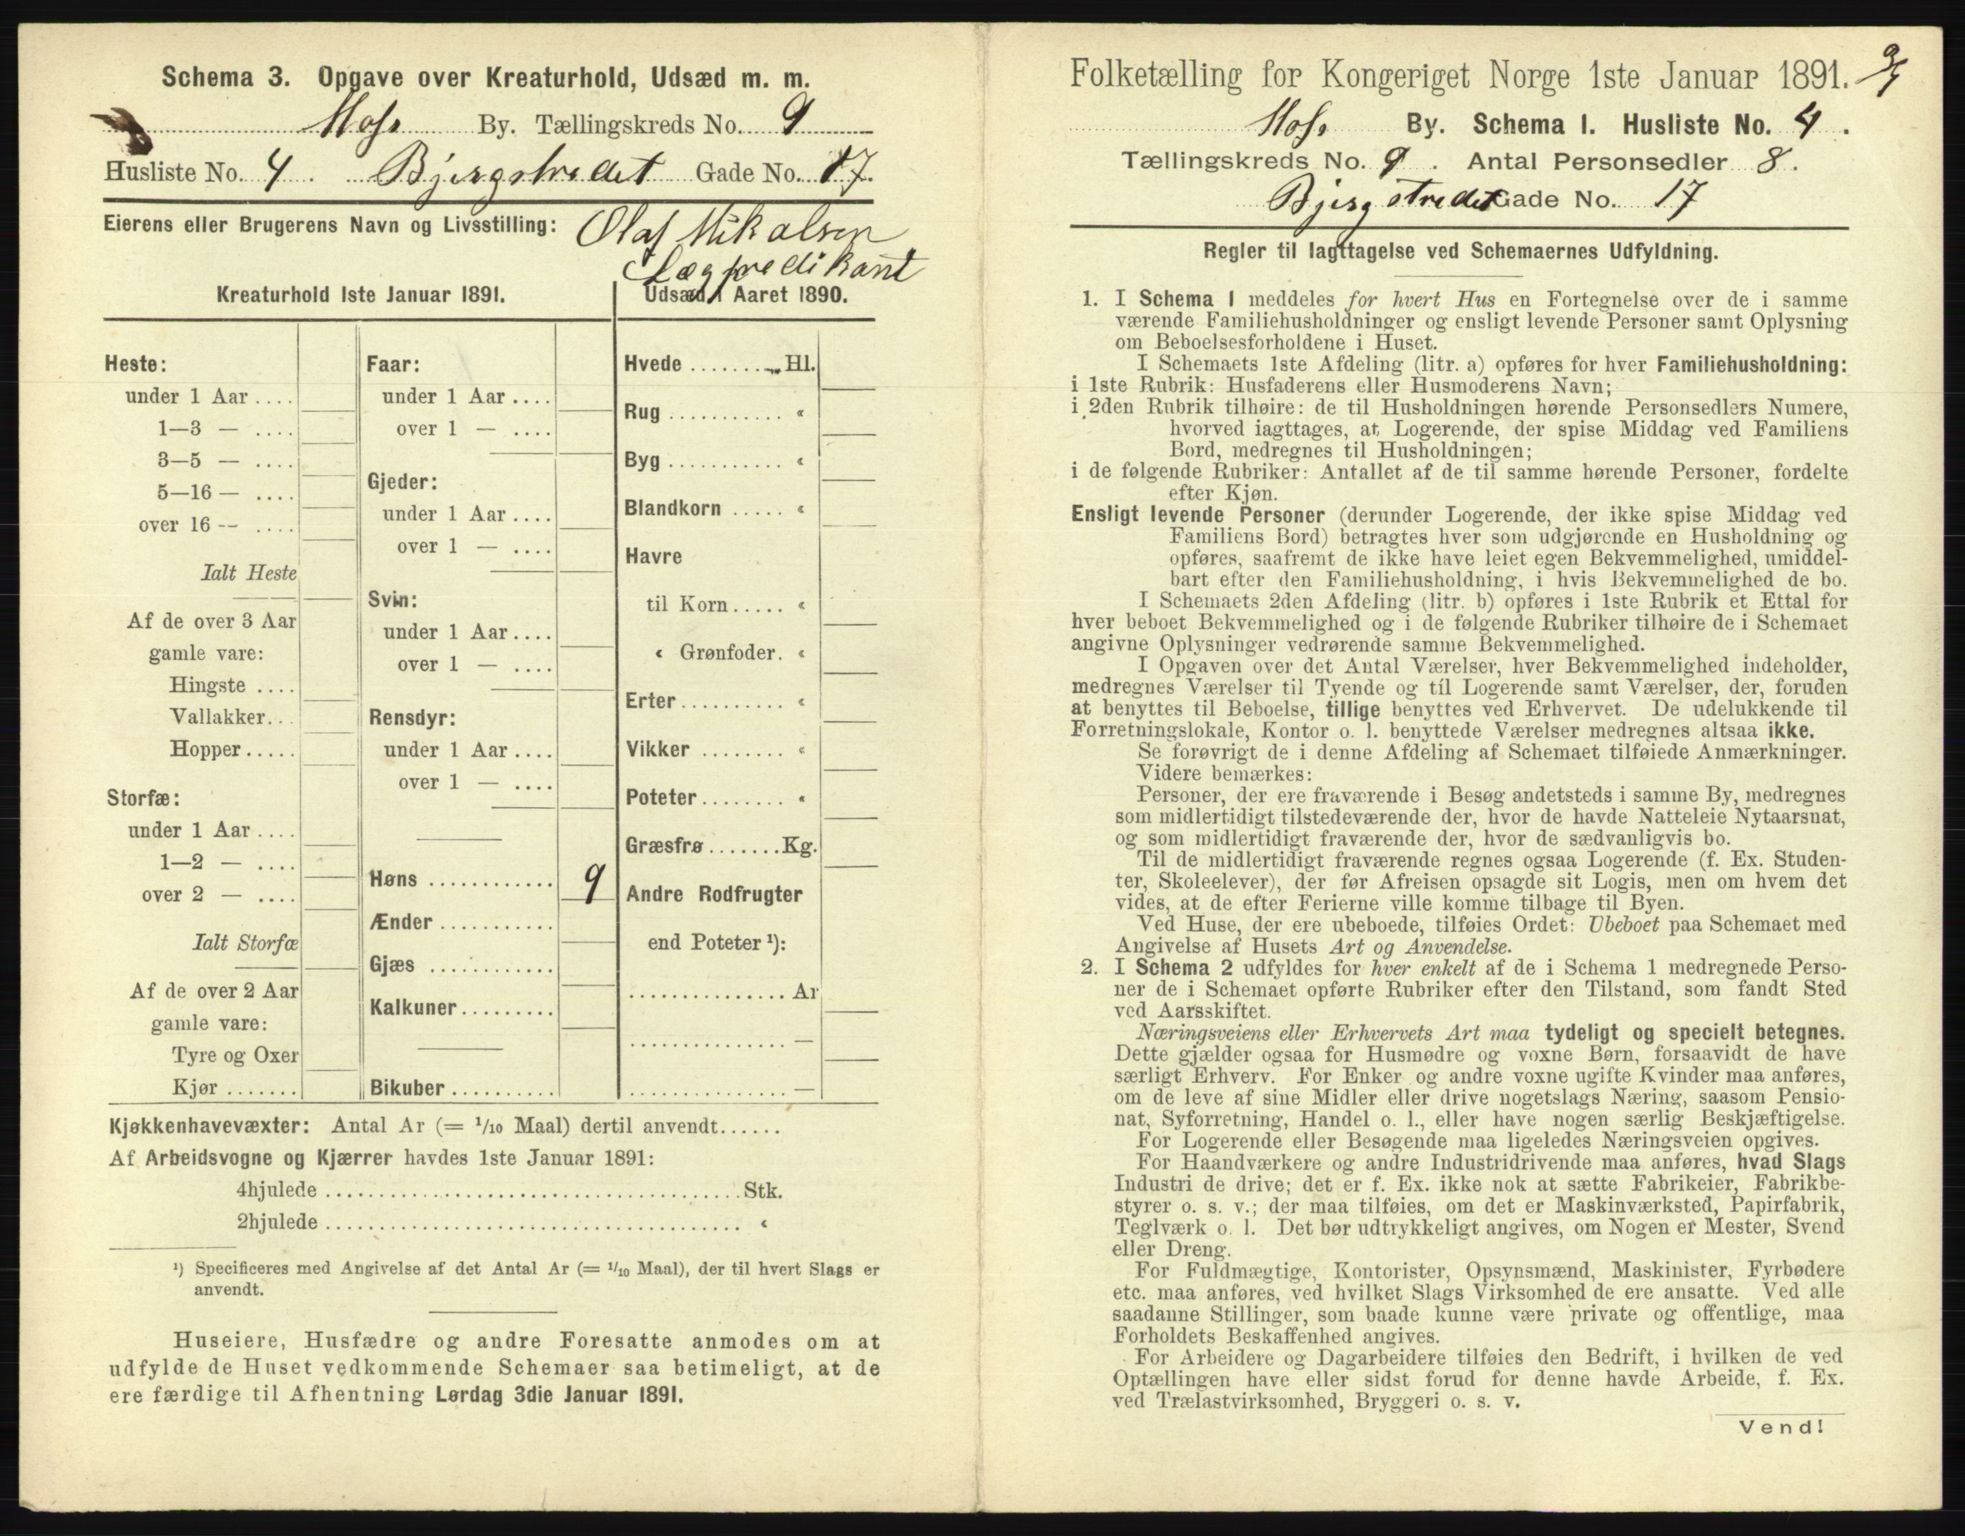 Schema 3. Opgave over Kreaturhold, Udsæd m. m.
Moss By. Tællingskreds No. 9
Husliste No. 4. Bjergstredet Gade No. 17.
Eierens eller Brugerens Navn og Livsstilling: Olaf Mikalsen
Lægpredikant
Kreaturhold 1ste Januar 1891.
Heste:
under 1 Aar ....
1—3 — ....
3—5 — ....
5—16 — ....
over 16 — ....
Ialt Heste
Af de over 3 Aar
gamle vare:
Hingste ....
Vallakker...
Hopper .....
Storfæ:
under 1 Aar ....
1—2 — ....
over 2 — ....
Ialt Storfæ
Af de over 2 Aar
gamle vare:
Tyre og Oxer
Kjør .......
Faar:
under 1 Aar ....
over 1 — ....
Gjeder:
under 1 Aar ....
over 1 — ....
Svin:
under 1 Aar ....
over 1 — ....
Rensdyr:
under 1 Aar ....
over 1 — ....
Høns ............ 9
Ænder ...........
Gjæs ............
Kalkuner.........
Bikuber ..........
Udsæd i Aaret 1890.
Hvede ........ Hl.
Rug ........... «
Byg ........... «
Blandkorn ..... «
Havre
til Korn ..... «
« Grønfoder. «
Erter.......... «
Vikker ........ «
Poteter........ «
Græsfrø ....... Kg.
Andre Rodfrugter
end Poteter ¹):
............... Ar
............... —
............... —
Kjøkkenhavevæxter: Antal Ar (= 1/10 Maal) dertil anvendt......
Af Arbeidsvogne og Kjærrer havdes 1ste Januar 1891:
4hjulede ........................................ Stk.
2hjulede ........................................ «
¹) Specificeres med Angivelse af det Antal Ar (= 1/10 Maal), der til hvert Slags er
anvendt.
Huseiere, Husfædre og andre Foresatte anmodes om at
udfylde de Huset vedkommende Schemaer saa betimeligt, at de
ere færdige til Afhentning Lørdag 3die Januar 1891.
Folketælling for Kongeriget Norge 1ste Januar 1891.
Moss By. Schema 1. Husliste No. 4.
Tællingskreds No. 9. Antal Personsedler 8.
Bjergstredet Gade No. 17
Regler til Iagttagelse ved Schemaernes Udfyldning.
1. I Schema 1 meddeles for hvert Hus en Fortegnelse over de i samme
værende Familiehusholdninger og ensligt levende Personer samt Oplysning
om Beboelsesforholdene i Huset.
I Schemaets 1ste Afdeling (litr. a) opføres for hver Familiehusholdning:
i 1ste Rubrik: Husfaderens eller Husmoderens Navn;
i 2den Rubrik tilhøire: de til Husholdningen hørende Personsedlers Numere,
hvorved iagttages, at Logerende, der spise Middag ved Familiens
Bord, medregnes til Husholdningen;
i de følgende Rubriker: Antallet af de til samme hørende Personer, fordelte
efter Kjøn.
Ensligt levende Personer (derunder Logerende, der ikke spise Middag ved
Familiens Bord) betragtes hver som udgjørende en Husholdning og
opføres, saafremt de ikke have leiet egen Bekvemmelighed, umiddel-
bart efter den Familiehusholdning, i hvis Bekvemmelighed de bo.
I Schemaets 2den Afdeling (litr. b) opføres i 1ste Rubrik et Ettal for
hver beboet Bekvemmelighed og i de følgende Rubriker tilhøire de i Schemaet
angivne Oplysninger vedrørende samme Bekvemmelighed.
I Opgaven over det Antal Værelser, hver Bekvemmelighed indeholder,
medregnes Værelser til Tyende og til Logerende samt Værelser, der, foruden
at benyttes til Beboelse, tillige benyttes ved Erhvervet. De udelukkende til
Forretningslokale, Kontor o. l. benyttede Værelser medregnes altsaa ikke.
Se forøvrigt de i denne Afdeling af Schemaet tilføiede Anmærkninger.
Videre bemærkes:
Personer, der ere fraværende i Besøg andetsteds i samme By, medregnes
som midlertidigt tilstedeværende der, hvor de havde Natteleie Nytaarsnat,
og som midlertidigt fraværende der, hvor de sædvanligvis bo.
Til de midlertidigt fraværende regnes ogsaa Logerende (f. Ex. Studen-
ter, Skoleelever), der før Afreisen opsagde sit Logis, men om hvem det
vides, at de efter Ferierne ville komme tilbage til Byen.
Ved Huse, der ere ubeboede, tilføies Ordet: Ubeboet paa Schemaet med
Angivelse af Husets Art og Anvendelse.
2. I Schema 2 udfyldes for hver enkelt af de i Schema 1 medregnede Perso-
ner de i Schemaet opførte Rubriker efter den Tilstand, som fandt Sted
ved Aarsskiftet.
Næringsveiens eller Erhvervets Art maa tydeligt og specielt betegnes.
Dette gjælder ogsaa for Husmødre og voxne Børn, forsaavidt de have
særligt Erhverv. For Enker og andre voxne ugifte Kvinder maa anføres,
om de leve af sine Midler eller drive nogetslags Næring, saasom Pensio-
nat, Syforretning, Handel o. l., eller have nogen særlig Beskjæftigelse.
For Logerende eller Besøgende maa ligeledes Næringsveien opgives.
For Haandværkere og andre Industridrivende maa anføres, hvad Slags
Industri de drive; det er f. Ex. ikke nok at sætte Fabrikeier, Fabrikbe-
styrer o. s. v.; der maa tilføies, om det er Maskinværksted, Papirfabrik,
Teglværk o. l. Det bør udtrykkeligt angives, om Nogen er Mester, Svend
eller Dreng.
For Fuldmægtige, Kontorister, Opsynsmænd, Maskinister, Fyrbødere
etc. maa anføres, ved hvilket Slags Virksomhed de ere ansatte. Ved alle
saadanne Stillinger, som baade kunne være private og offentlige, maa
Forholdets Beskaffenhed angives.
For Arbeidere og Dagarbeidere tilføies den Bedrift, i hvilken de ved
Optællingen have eller sidst forud for denne havde Arbeide, f. Ex.
ved Trælastvirksomhed, Bryggeri o. s. v.
Vend!